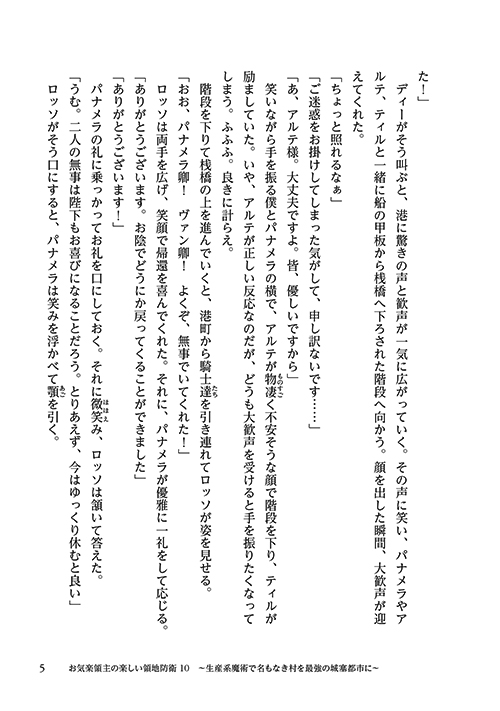 た！」
　ディーがそう叫ぶと、港に驚きの声と歓声が一気に広がっていく。その声に笑い、パナメラやア
ルテ、ティルと一緒に船の甲板から桟橋へ下ろされた階段へ向かう。顔を出した瞬間、大歓声が迎
えてくれた。
「ちょっと照れるなぁ」
「ご迷惑をお掛けしてしまった気がして、申し訳ないです……」
「あ、アルテ様。大丈夫ですよ。皆、優しいですから」
　笑いながら手を振る僕とパナメラの横で、アルテが物凄く不安そうな顔で階段を下り、ティルが
励ましていた。いや、アルテが正しい反応なのだが、どうも大歓声を受けると手を振りたくなって
しまう。ふふふ。良きに計らえ。
　階段を下りて桟橋の上を進んでいくと、港町から騎士達を引き連れてロッソが姿を見せる。
「おお、パナメラ卿！　ヴァン卿！　よくぞ、無事でいてくれた！」
　ロッソは両手を広げ、笑顔で帰還を喜んでくれた。それに、パナメラが優雅に一礼をして応じる。
「ありがとうございます。お陰でどうにか戻ってくることができました」
「ありがとうございます！」
　パナメラの礼に乗っかってお礼を口にしておく。それに微笑み、ロッソは頷いて答えた。
「うむ。二人の無事は陛下もお喜びになることだろう。とりあえず、今はゆっくり休むと良い」
　ロッソがそう口にすると、パナメラは笑みを浮かべて顎を引く。
5　お気楽領主の楽しい領地防衛 10　～生産系魔術で名もなき村を最強の城塞都市に～